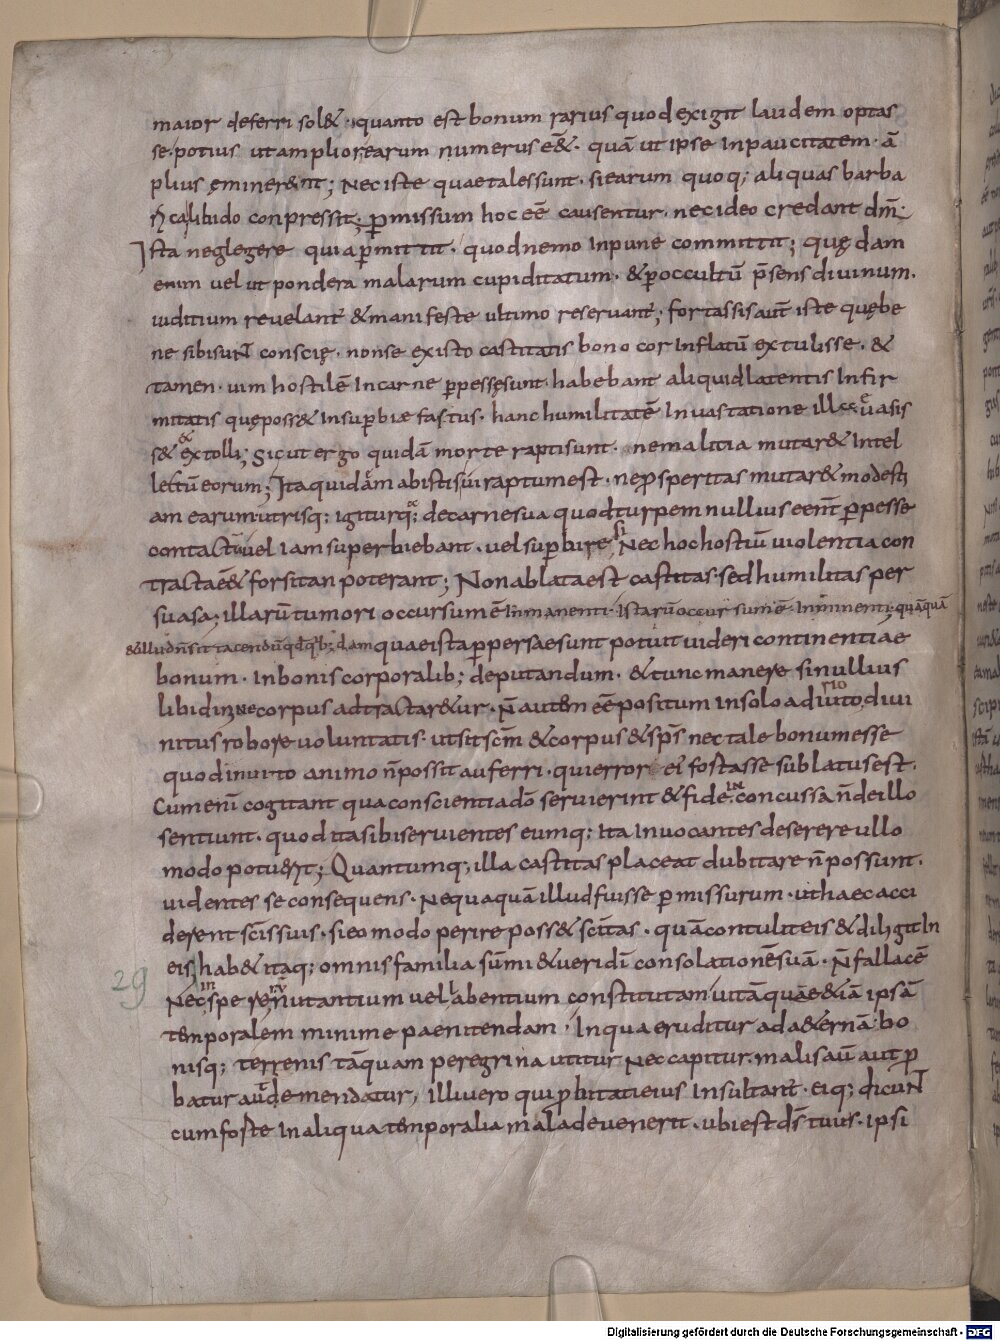 maior deferri sol&. quanto est bonum rarius quod exigit laudem optas
se. potius ut ampliorearum numerus eēt. quā ut ipse inpaucitatem. ā
plius emineret; Nec iste quae tales sunt. si earum quoq; aliquas barba
rica libido conpressit; pmissum hoc eē causentur. nec ideo credant dm̄.
Ista neglegere quia pmittit. quod nemo inpune committit; quędam
enim uel ut pondera malarum cupiditatum. & poccultū psens diuinum.
iuditium reuelant & manifeste ultimo reseruant; fortassis aut̄ iste quębe
ne sibi sunt conscię. non se ex isto castitatis bono cor inflatū extulisse. &
tamen. uim hostilē incarne ppessę sunt. habebant aliquid latentis infir
mitatis quę poss& insupbiae fastus. hanc humilitatē inuastatione illa euasis
s& extolli; Sicut ergo quidā morte rapti sunt. ne malitia mutar& intel
lectū eorum; Ita quidam ab istis ui raptum est. ne psperitas mutar& modesti
am earum utrisq; igiturq; de carne sua quod turpem nullius eent ppesse
contactū uel iam superbiebant. uel supbire si Nec hoc hostiū uiolentia con
tractae& forsitan poterant; Non ablata est castitas. sed humilitas per
suasa; illarū tumori occursum ē inmanenti. Istarū occursum ē. Inminenti; quāquā
& illud n̄ sit tacendū qd qbdam quae ista pperpessae sunt potuit uideri continentiae
bonum. In bonis corporalib; deputandum. & tunc manere si nullius
libidine corpus adtractar&ur. n̄ autem eē positum in solo adiuto rio diui
nitus robore uoluntatis. ut sit scm̄ & corpus & sp̄s nec tale bonum esse
quod inuito animo n̄ possit auferri. qui error ei fostasse sublatus est.
Cum enī cogitant qua conscientia dō seruierint & fide inconcussa n̄ de illo
sentiunt. quod ita sibi seruientes eumq; ita inuocantes deserere ullo
modo potuerit; Quantumq; illa castitas placeat dubitare n̄ possunt.
uidentes se consequens. Nequaquā illud fuisse pmissurum. ut haec acci
derent sc̄is suis. si eo modo perire poss& sc̄itas. quā contulit eis & diligit in
eis; hab& itaq; omnis familia sūmi & ueri dī consolationē suā. n̄ fallacē
Nec in spe rerū nutantium uel labentium constitutam uitāquae & iā ipsā
temporalem minime paenitendam. In qua eruditur ad a&ernā. bo
nisq; terrenis tāquam peregrina utitur nec capitur. malis aū aut p
batur aut emendatur, illi uero qui pbitati eius insultant. eiq; dicunt
cum foste in aliqua temporalia mala deuenerit. ubi est d̄s tuus. ipsi
29
Digitalisierung gefördert durch die Deutsche Forschungsgemeinschaft - DFG